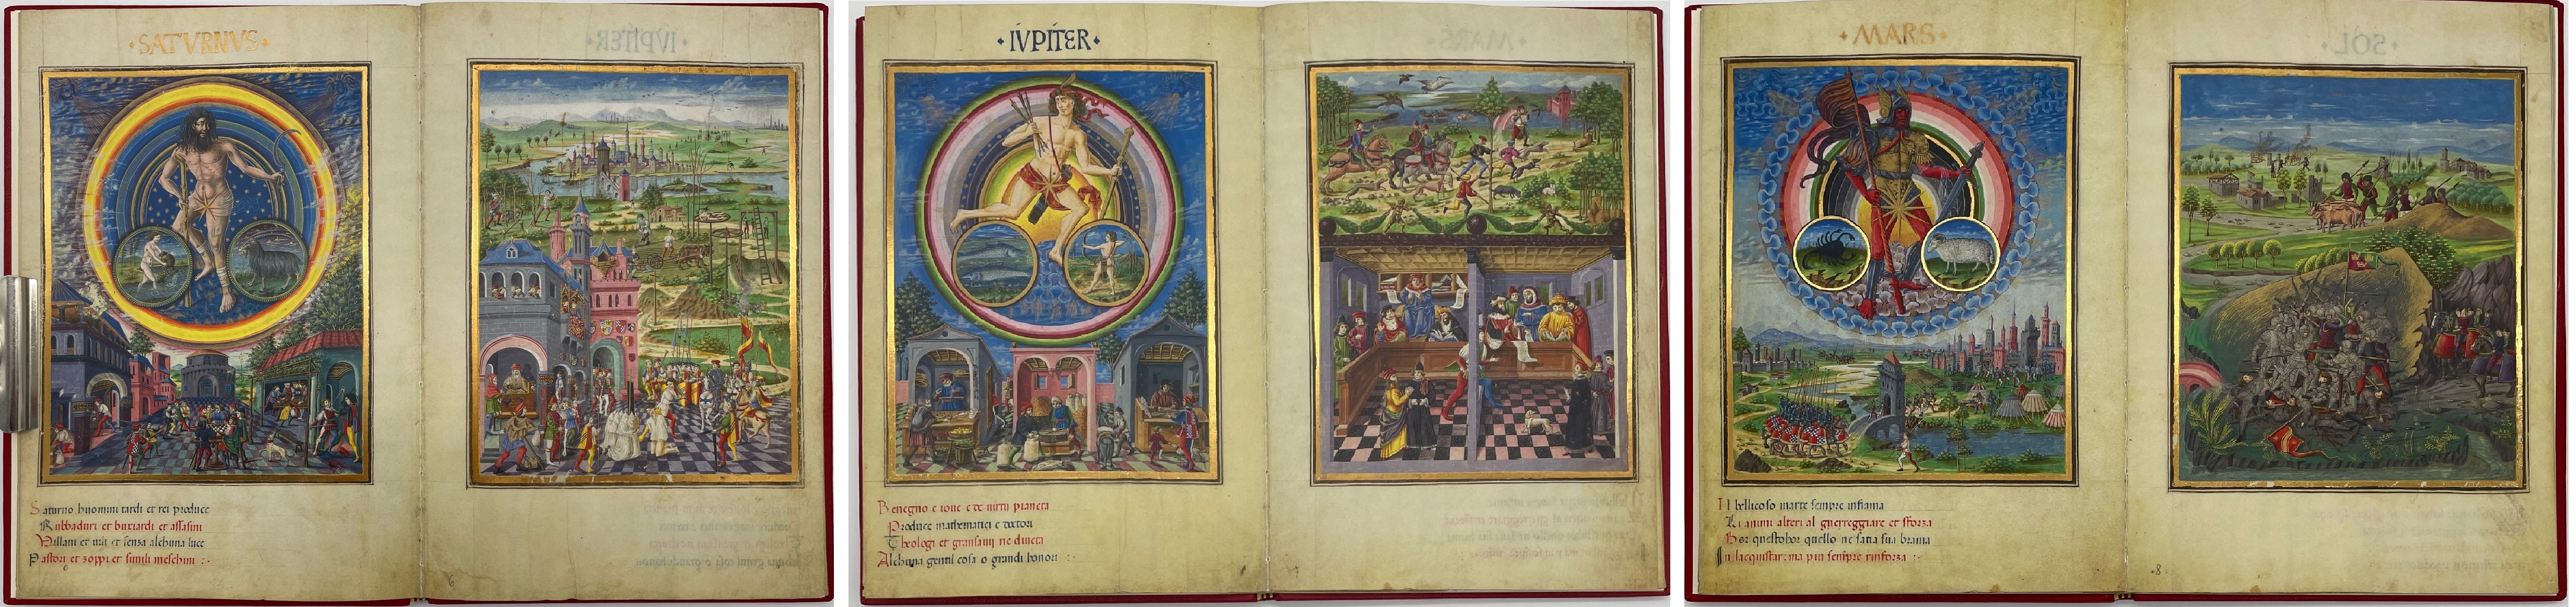 ·SATVRNVS·
Saturno huomini tardi et rei produce
Rubbaduri et buxiardi et assasini
Villani et uili et senza alchuna luce
Pastori et zoppi et simili meschini :·
·IVPITER·
Benegno e ioue e de uirtu pianeta
Produce mathematici e doctori
Theologi et gran sauij ne diueta
Alchuna gentil cosa o grandi honori :·
·MARS·
Il bellicoso marte sempre infiama
Li animi alteri al guerreggiare et sforza
Hor questo hor quello ne satia sua brama
In lacquistar: ma piu sempre rinforza :·
·8